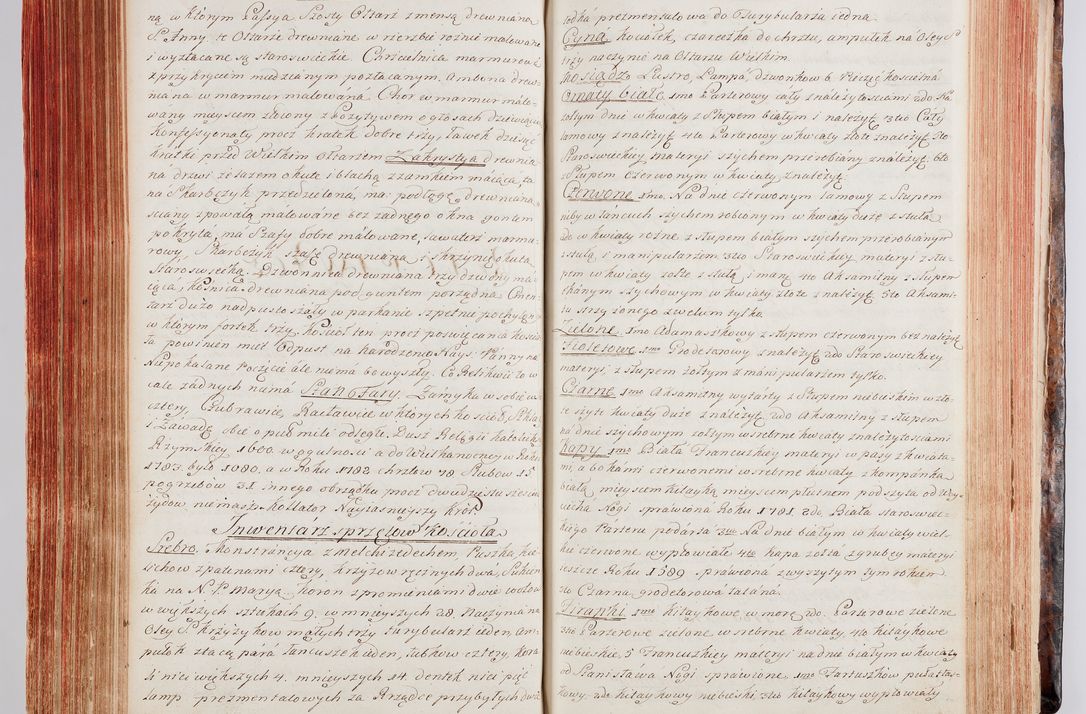 ną w którym Passya Szosty Ołtarz z mensą drewnianą
S. Anny, te Ołtarze drewniane w rzezbie roznie malowane
i wyztacane są staroswieckie. Chrzcielnica marmurowa
z przykryciem miedzianym poztacanym. Ambona drew-
niana w marmur malowána. Chor w marmur málo-
wany mieyscem złocony z Pozytywem o głosach dziewiąciu
Konfessyonały procz kratek dobre trzy, ławek dziesięć
kratki przed Wielkim Ołtarzem Zakrystya drewnia-
na drzwi żelazem okute i blachą z zamkiem maiąca, za
na Skarbczyk przedzielona, ma podłogę drewnianą
sciany z powałą malowane bez żadnego okna gontam
pokryta, má Szafy dobre málowane, Lawaterz marmu-
rowy, Skarbczyk szafę drewnianą i skrzynię okutą
Staroswiecką. Dzwonnica drewniana trzy dzwony ma-
iąca, kosnica drewniana pod guntem porządna Cmen-
tarz dużo nadpustoszały w parkanie szpetnie pochyłego
w którym fortek trzy, Kosciol ten procz poswięcania kościo
ła powinien mieć Odpust na Narodzenie Nays: Panny na
Niepokalane Poczęcie ale niema bo wyszły. Co Relikwii to w
cale żadnych niema Stan Fary. Zamyka w sobie wsi
cztery, Czubrawice, Racławice w których kościoł, Szklar
i Zawadę obie o puł mili odległe. Dusz Religii katolick
Rzymskiey 1600. w ogulnosci a do Wielkanocney w Roku
1783. było 1080. a w Roku 1782 chrztow 78 Slubow 15
pogrzebow 31 innego obrządku procz dwudziestu sześciu
żydow niemasz Kollator Nayiasnieyszy Krol
Inwentárz sprzętow kościoła
Srebro. Monstráncya z Melchizedechem, Puszka kie-
lichow z patenami cztery, krzyżow ręcznych dwá, Sukien-
ka na N. P. Maryą koron z promieniami dwie wotow
w większych sztukach 9. w mnieyszych 28. Naczynia na
Oley S. krzyżykow małych trzy turybularz ieden, am-
pułek z tacą pará łancuszek ieden, łebkow cztery, Kora-
li nici większych 4. mnieyszych 14. dentek nici pięć
lamp prezmentalowych za Rządce przybyłych dwie
łodka prezmentalowa do Turybularza iedna
Cyna kociołek czareczka do chrztu, ampułek na Oley S.
trzy naczynie na Ołtarzu Wielkim.
Mosiądz Lustro, Lampá dzwonkow 6. Pieczęć kościelná
Ornaty białe 1mo Parterowy cały z należytościami 2do Na
żołtym dnie w kwiaty z słupem białym i należyt: 3tio Cały
lamowy z należyt: 4to Parterowy w kwiaty złote z należyt: 5to
Staroswieckiey materyi szychem przerabiany z należyt: 6to
z Słupem Czerwonym w kwiaty z należyt:
Czerwone 1mo. Na dnie czerwonym lamowy z Słupem
niby w łancuch szychem robionym w kwiaty duże z stułą
2do w kwiaty rożne z słupem białym szychem przerobianym
z stułą, i manipularzem 3tio Staroswieckiey materyi z słu-
pem w kwiaty żołte z stułą, i man: 4to Aksamitny z słupem
tkánym szychowym w kwiaty złote z należyt: 5to Aksami-
tu strzyżonego z welum tylko.
Zielone. 1mo Adamaszkowy z słupem czerwonym bez należyt:
Fioletowe. 1mo Grodetorowy z należyt: 2do Staroswieckiey
materyi z słupem żołtym z mánipularzem tylko.
Czarne 1mo Aksamitny wytarty z Słupem niebieskim w zło-
te szyte kwiaty duże z należyt: 2do Aksamitny z słupem
na dnie szychowym żołtym w srebrne kwiaty z należytościami
Kapy 1mo Biała Francuzkiey materyi w pasy z kwiata-
mi, a bokámi czerwonemi w srebrne kwiaty z kompánką
białą mieyscem kitayką mieyscem płutnem podszyta od Woy-
ciecha Nogi sprawiona Roku 1781. 2do Biała staroswiec-
kiego Parteru podárta 3tio Na dnie białym w kwiaty wiel-
kie czerwone wypłowiałe 4to kapa zołta z grubey materyi
ieszcze Roku 1589 sprawiona z wyszytym tym rokiem
5to Czarna grodetorowa łatana.
Firanki 1mo kitaykowe w morę 2do. Parterowe zielone
3tio Parterowe zielone w srebrne kwiaty, 4to kitaykowe
niebieskie, 5 Francuzkiey materyi na dnie białym w kwiaty
od Stanisława Nogi sprawione, 1mo Fartuszkow pułatłas-
kowy 2do kitaykowy niebieski 3tio kitaykowy wypłowiały